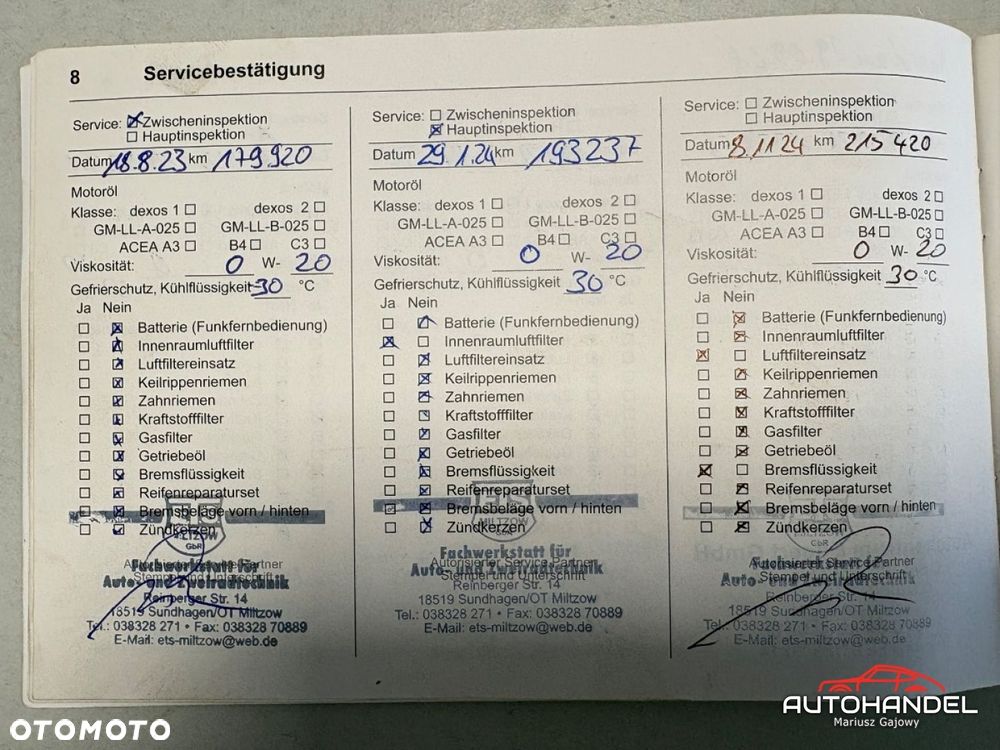 8 Servicebestätigung
Service: Zwischeninspektion
Hauptinspektion
Datum 18.8.23 km 179920
Motoröl
Klasse: dexos 1 dexos 2
GM-LL-A-025 GM-LL-B-025
ACEA A3 B4 C3
Viskosität: 0 W- 20
Gefrierschutz, Kühlflüssigkeit -30 °C
Ja Nein
Batterie (Funkfernbedienung)
Innenraumluftfilter
Luftfiltereinsatz
Keilrippenriemen
Zahnriemen
Kraftstofffilter
Gasfilter
Getriebeöl
Bremsflüssigkeit
Reifenreparaturset
Bremsbeläge vorn / hinten
Zündkerzen
MILTZOW
GbR
Autorisierter Service Partner
Fachwerkstatt für
Stempel und Unterschrift
Auto- und Zweiradtechnik
Reinberger Str. 14
18519 Sundhagen/OT Miltzow
Tel.: 038328 271 • Fax: 038328 70889
E-Mail: ets-miltzow@web.de
Service: Zwischeninspektion
Hauptinspektion
Datum 29.1.24 km 193237
Motoröl
Klasse: dexos 1 dexos 2
GM-LL-A-025 GM-LL-B-025
ACEA A3 B4 C3
Viskosität: 0 W- 20
Gefrierschutz, Kühlflüssigkeit 30 °C
Ja Nein
Batterie (Funkfernbedienung)
Innenraumluftfilter
Luftfiltereinsatz
Keilrippenriemen
Zahnriemen
Kraftstofffilter
Gasfilter
Getriebeöl
Bremsflüssigkeit
Reifenreparaturset
Bremsbeläge vorn / hinten
Zündkerzen
ETS
MILTZOW
GbR
Fachwerkstatt für
Autorisierter Service Partner
Auto- und Zweiradtechnik
Stempel und Unterschrift
Reinberger Str. 14
18519 Sundhagen/OT Miltzow
Tel.: 038328 271 • Fax: 038328 70889
E-Mail: ets-miltzow@web.de
Service: Zwischeninspektion
Hauptinspektion
Datum 8.11.24 km 215420
Motoröl
Klasse: dexos 1 dexos 2
GM-LL-A-025 GM-LL-B-025
ACEA A3 B4 C3
Viskosität: 0 W- 20
Gefrierschutz, Kühlflüssigkeit 30 °C
Ja Nein
Batterie (Funkfernbedienung)
Innenraumluftfilter
Luftfiltereinsatz
Keilrippenriemen
Zahnriemen
Kraftstofffilter
Gasfilter
Getriebeöl
Bremsflüssigkeit
Reifenreparaturset
Bremsbeläge vorn / hinten
Zündkerzen
Autorisierter Service Partner
Fachwerkstatt für
Stempel und Unterschrift
Auto- und Zweiradtechnik
Reinberger Str. 14
18519 Sundhagen/OT Miltzow
Tel.: 038328 271 • Fax: 038328 70889
E-Mail: ets-miltzow@web.de
AUTOHANDEL
Mariusz Gajowy
OTOMOTO